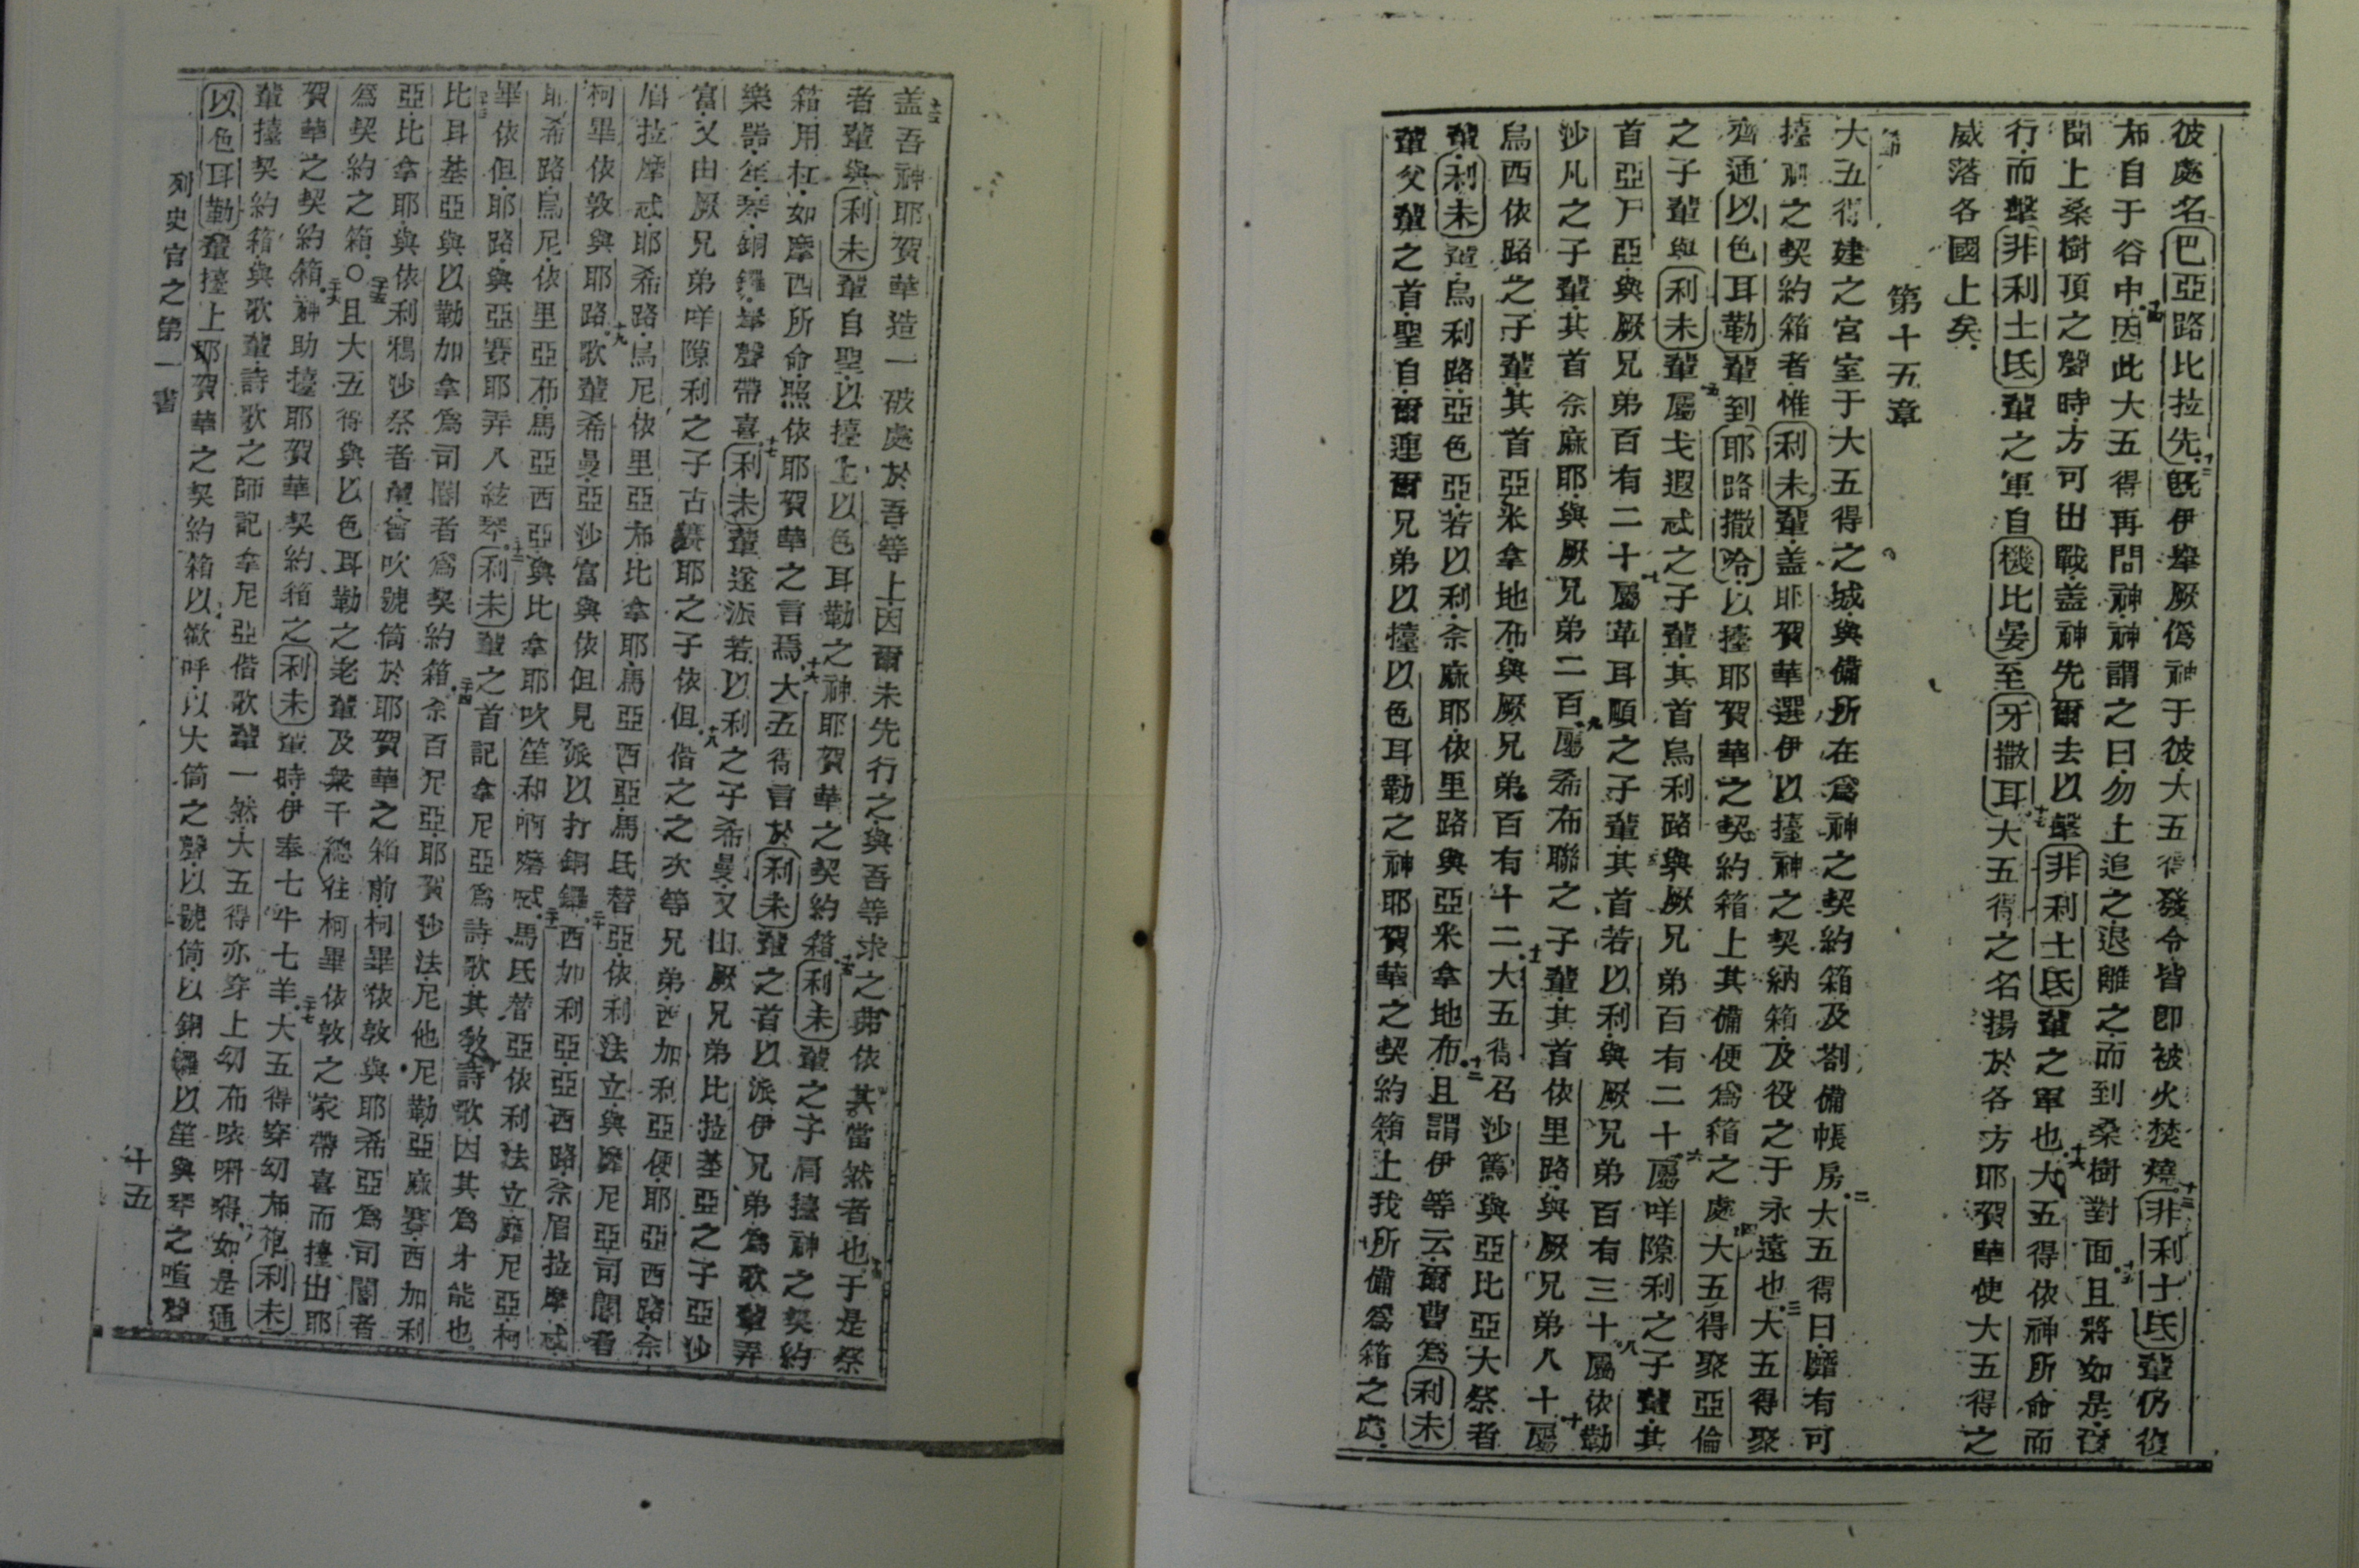 彼處名巴亞路比拉先十二既伊舉厥偽神于彼大五得發令皆即被火焚燒十三非利士氏輩仍復
布自于谷中十四因此大五得再問神神謂之曰勿上追之退離之而到桑樹對面十五且將如是爾
聞上桑樹頂之聲時方可出戰蓋神先爾去以擊非利士氏輩之軍也十六大五得依神所命而
行而擊非利士氏輩之軍自機比晏至牙撒耳十七大五得之名揚於各方耶賀華使大五得之
威落各國上矣
第十五章
節大五得建之宮室于大五得之城與備所在為神之契約箱及劄備帳房二大五得曰靡有可
擡神之契約箱者惟利未輩蓋耶賀華選伊以擡神之契約箱及役之于永遠也三大五得聚
齊通以色耳勒輩到耶路撒哈以擡耶賀華之契約箱上其備便為箱之處四大五得聚亞倫
之子輩與利未輩五屬戈遐忒之子輩其首烏利路與厥兄弟百有二十六屬咩隙利之子輩其
首亞尸亞與厥兄弟百有二十七屬革耳順之子輩其首若以利與厥兄弟百有三十八屬依勒
沙凡之子輩其首佘麻耶與厥兄弟二百九屬希布聯之子輩其首依里路與厥兄弟八十十屬
烏西依路之子輩其首亞米拿地布與厥兄弟百有十二十一大五得召沙篤與亞比亞大祭者
輩利未輩烏利路亞色亞若以利佘麻耶依里路與亞米拿地布十二且謂伊等云爾曹為利未
輩父輩之首聖自爾連爾兄弟以擡以色耳勒之神耶賀華之契約箱上我所備為箱之處
十三蓋吾神耶賀華造一破處於吾等上因爾未先行之與吾等求之弗依其當然者也十四于是祭
者輩與利未輩自聖以擡上以色耳勒之神耶賀華之契約箱十五利未輩之子肩擡神之契約
箱用杠如摩西所命照依耶賀華之言焉十六大五得言於利未輩之首以派伊兄弟為歌輩弄
樂器笙琴銅鑼舉聲帶喜十七利未輩遂派若以利之子希曼又由厥兄弟比拉基亞之子亞沙
富又由厥兄弟咩隙利之子古賽耶之子依但十八偕之之次等兄弟西加利亞便耶亞西路佘
眉拉摩忒耶希路烏尼依里亞布比拿耶馬亞西亞馬氏替亞依利法立與靡尼亞司閽者
柯畢依敦與耶路十九歌輩希曼亞沙富與依但見派以打銅鑼二十西加利亞亞西路佘眉拉摩忒
耶希路烏尼依里亞布馬亞西亞與比拿耶吹笙和啊嘮忒二十一馬氏替亞依利法立靡尼亞柯
畢依但耶路與亞賽耶弄八絃琴二十二利未輩之首記拿尼亞為詩歌其教詩歌因其為才能也
二十三比耳基亞與以勒加拿為司閽者為契約箱二十四佘百尼亞耶賀沙法尼他尼勒亞麻賽西加利
亞比拿耶與依利鴉沙祭者輩會吹號筒於耶賀華之箱前柯畢依敦與耶希亞為司閽者
為契約之箱〇二十五且大五得與以色耳勒之老輩及眾千總往柯畢依敦之家帶喜而擡出耶
賀華之契約箱二十六神助擡耶賀華契約箱之利未輩時伊奉七牛七羊二十七大五得穿幼布袍利未
輩擡契約箱與歌輩詩歌之師記拿尼亞偕歌輩一然大五得亦穿上幼布咴㖿得如是通
以色耳勒輩擡上耶賀華之契約箱以歡呼以大筒之聲以號筒以銅鑼以笙與琴之喧聲
列史官之第一書
十五